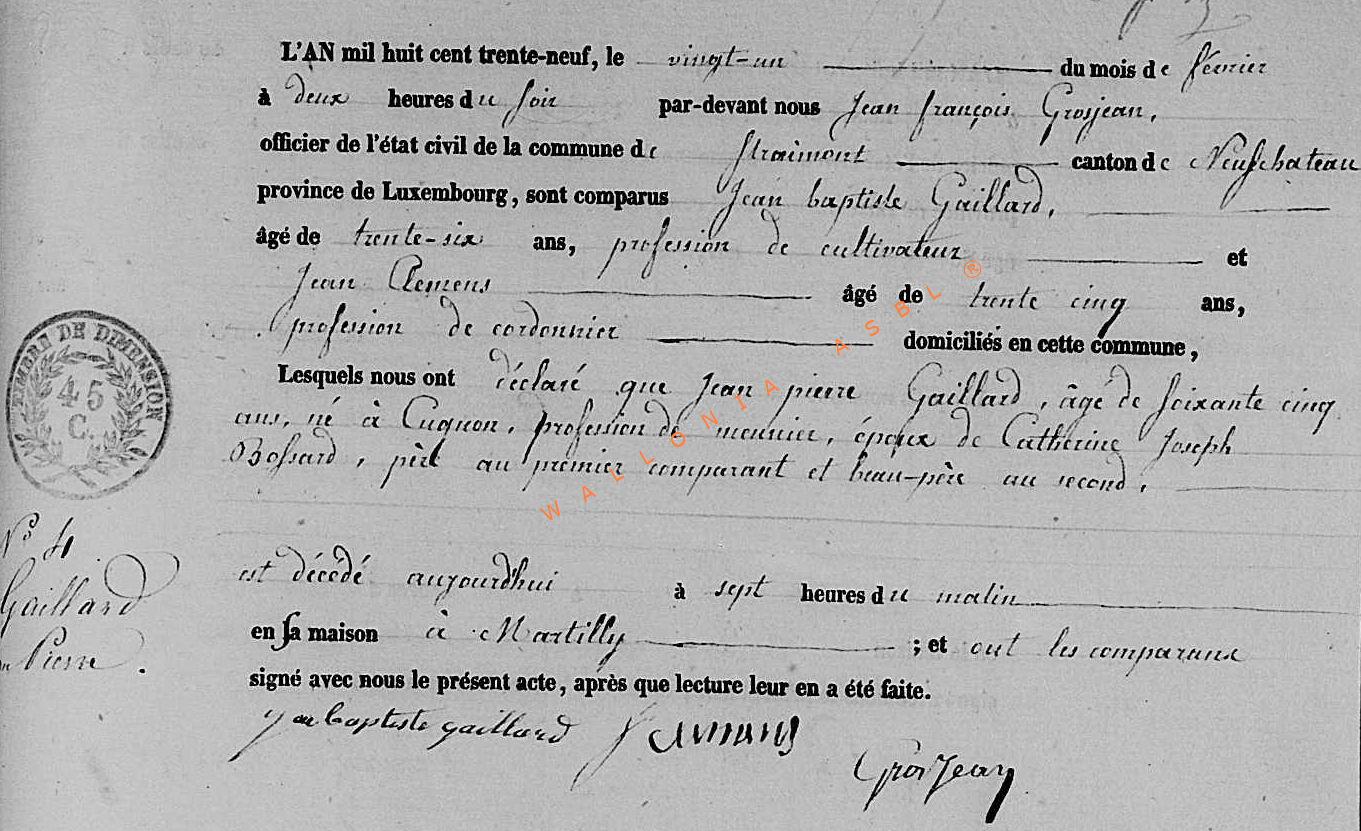 L'AN mil huit cent trente-neuf, le vingt-un du mois de février
à deux heures du soir par-devant nous Jean françois Grosjean,
officier de l'état civil de la commune de Straimont canton de Neufchateau
province de Luxembourg, sont comparus Jean baptiste Gaillard,
âgé de trente-six ans, profession de cultivateur et
Jean Clemens âgé de trente cinq ans,
profession de cordonnier domiciliés en cette commune,
Lesquels nous ont déclaré que Jean pierre Gaillard, âgé de soixante cinq
ans, né à Cugnon, profession de meunier, époux de Catherine Joseph
Bossard, père au premier comparant et beau-père au second,
TIMBRE DE DIMENSION
45
C.
N° 4
Gaillard
Pierre.
est décédé aujourd'hui à sept heures du matin
en sa maison à Martilly ; et ont les comparans
signé avec nous le présent acte, après que lecture leur en a été faite.
baptiste gaillard
Grosjean
WALLONIA ASBL ®